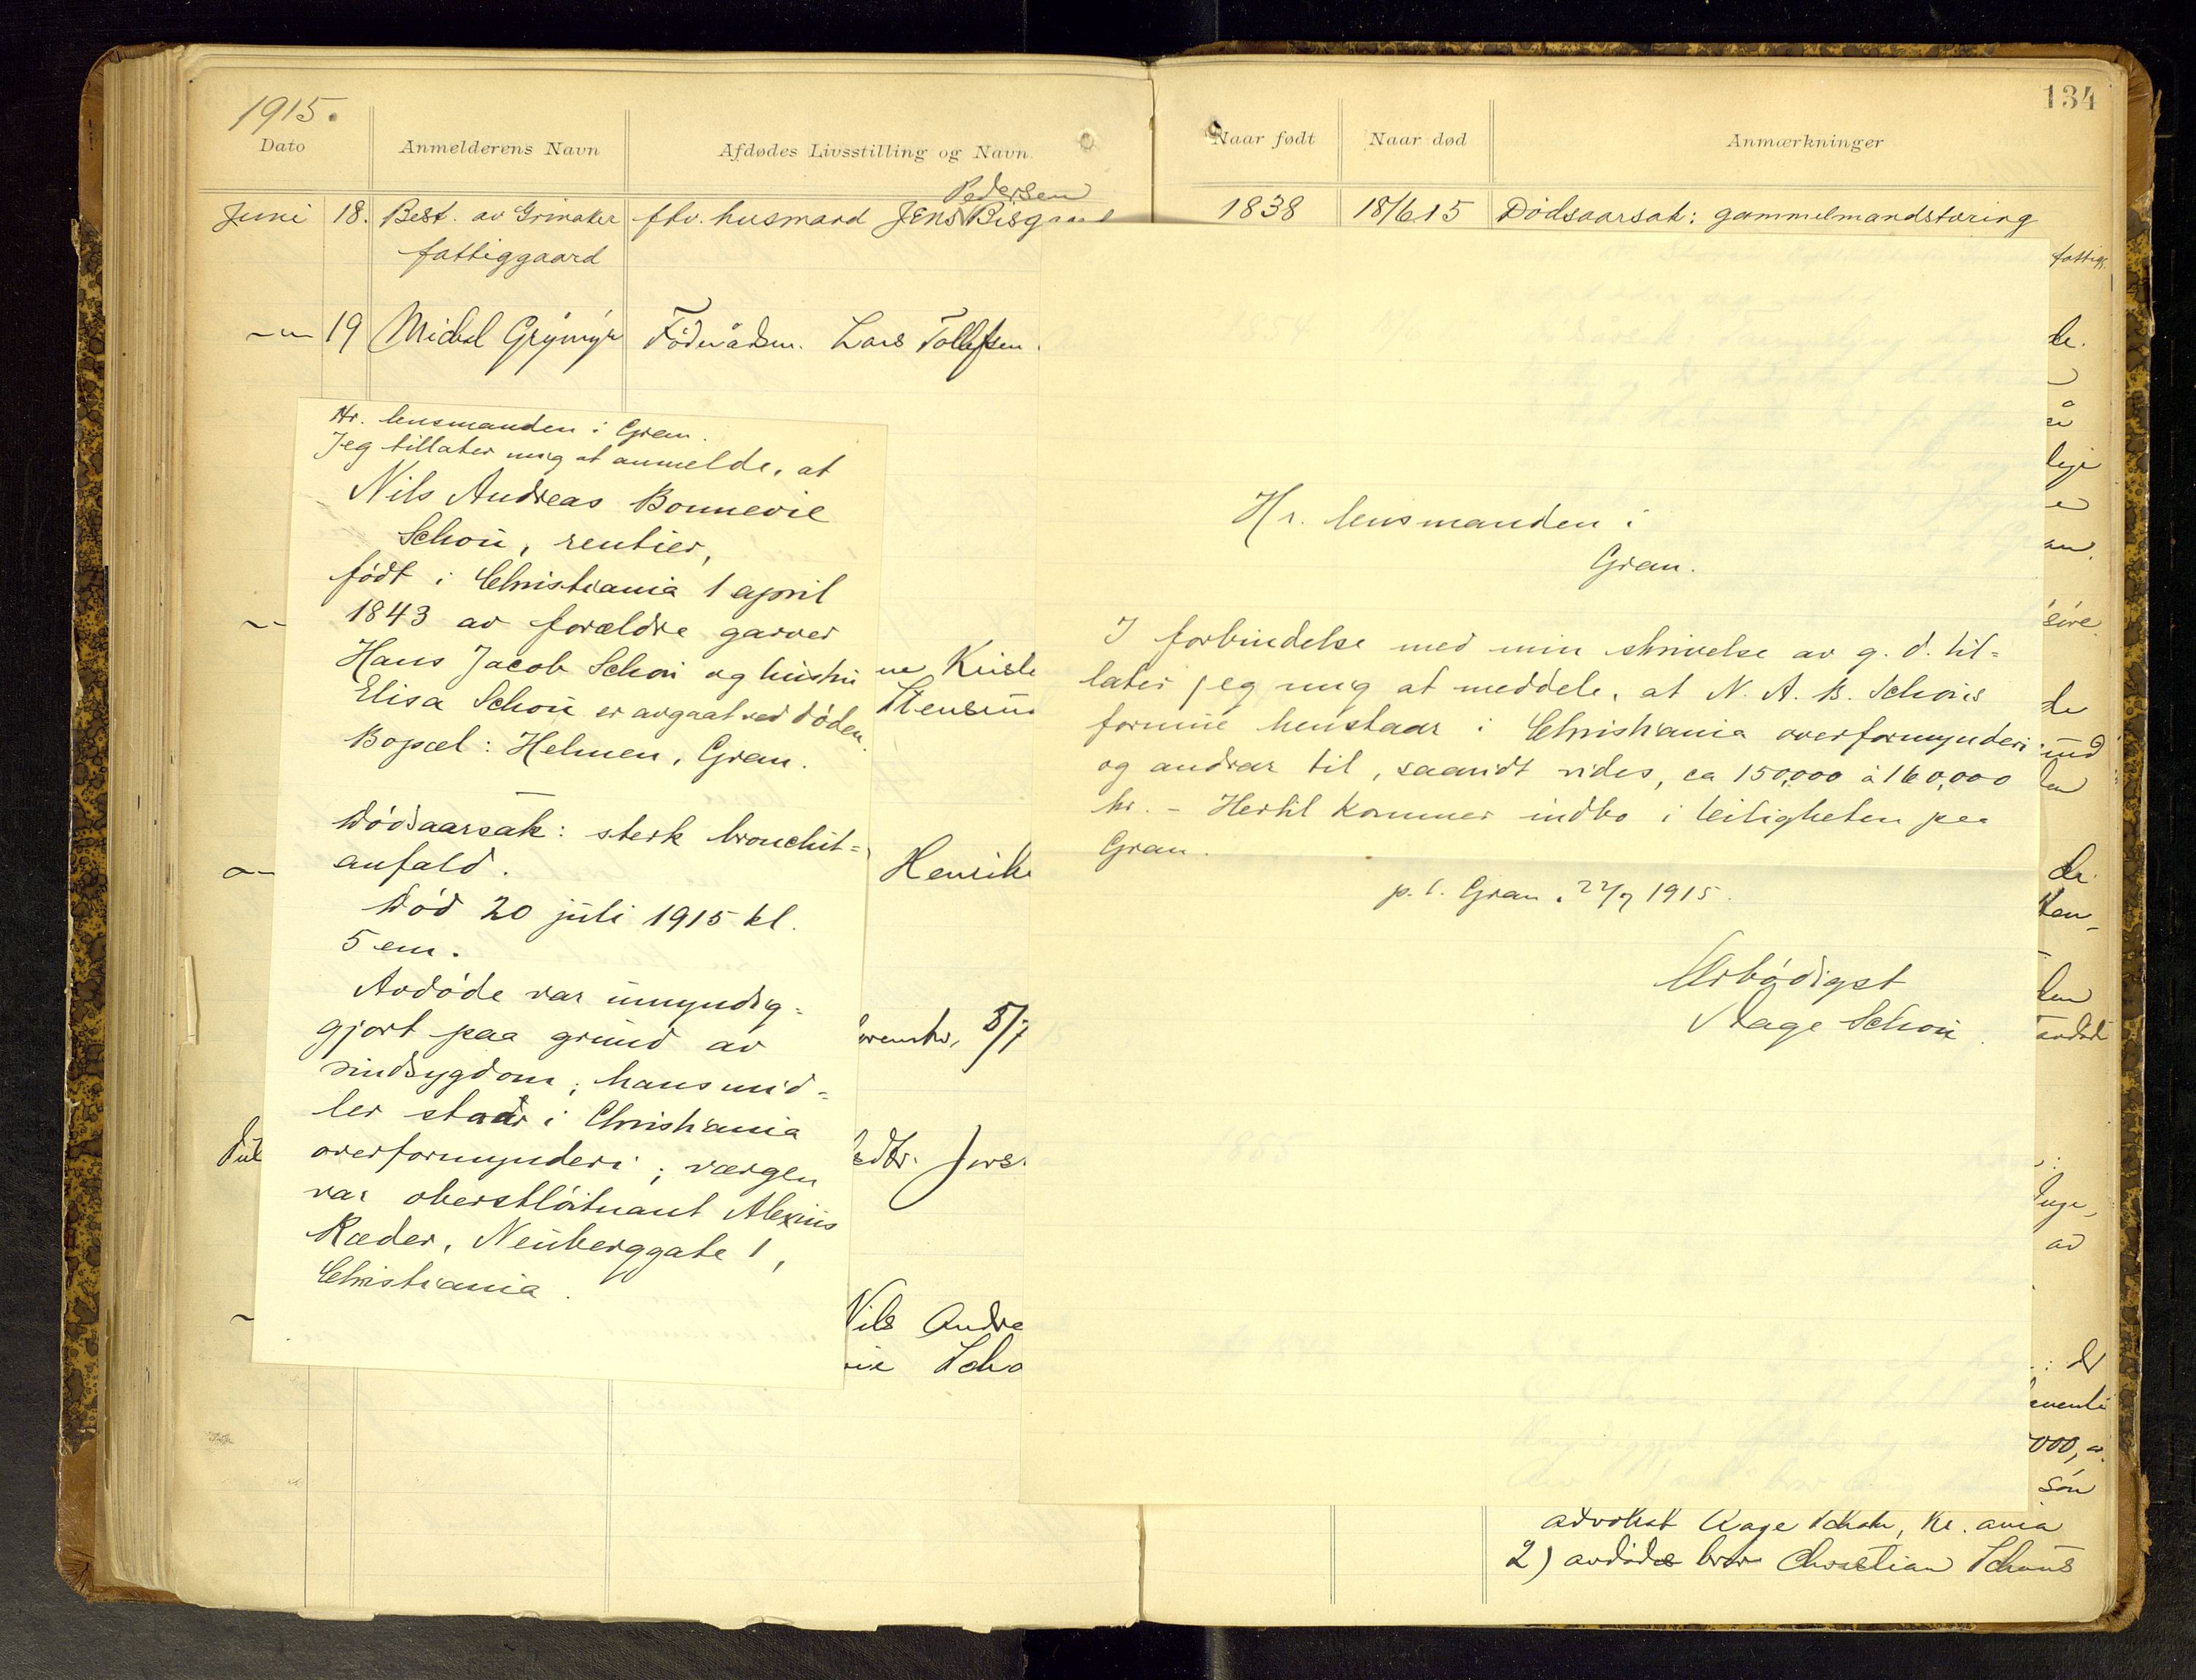 1915.
134
Dato
Anmelderens Navn
Afdødes Livsstilling og Navn.
Naar født
Naar død
Anmærkninger
Pedersen
Juni 18. Best. av Grinaker fhv. husmand Jens Bisgaard 1838 18/6 15 Dödsaarsak: gammelmandstæring
fattiggaard
fattigg.
19 Michel Grymyr Föderådsm. Lars Tollefsen.
Hr. lensmanden i Gran.
Jeg tillater mig at anmelde, at
Nils Andreas Bonnevie
Schou, rentier,
født i Christiania 1 april
1843 av forældre garver
Hans Jacob Schou og hustru
Elisa Schou er avgaat ved døden.
Bopæl: Helmen, Gran.
Dødsaarsak: sterk bronchit-
anfald.
Død 20 juli 1915 kl.
5 em.
Avdøde var umyndig-
gjort paa grund av
sindsygdom; hans mid-
ler staar i Christiania
overformynderi; værgen
var oberstløitnant Alexius
Ræder, Neuberggate 1,
Christiania.
Hr. lensmanden i
Gran.
I forbindelse med min skrivelse av g. d. til-
later jeg mig at meddele, at N. A. B. Schous
formue henstaar i Christiania overformynderi
og andrar til, saavidt vides, ca 150,000 à 160,000
kr. - Hertil kommer indbo i leiligheten paa
Gran.
p. t. Gran, 22/7 1915.
Ærbødigst
Aage Schou.
ne Kriste
Stensru
Henrik
5/7
Jul
Jørs
Nils Andre
vie Scho
000,
søn
advokat Aage Schou, Kr.ania
2) avdødes bror Christian Schous